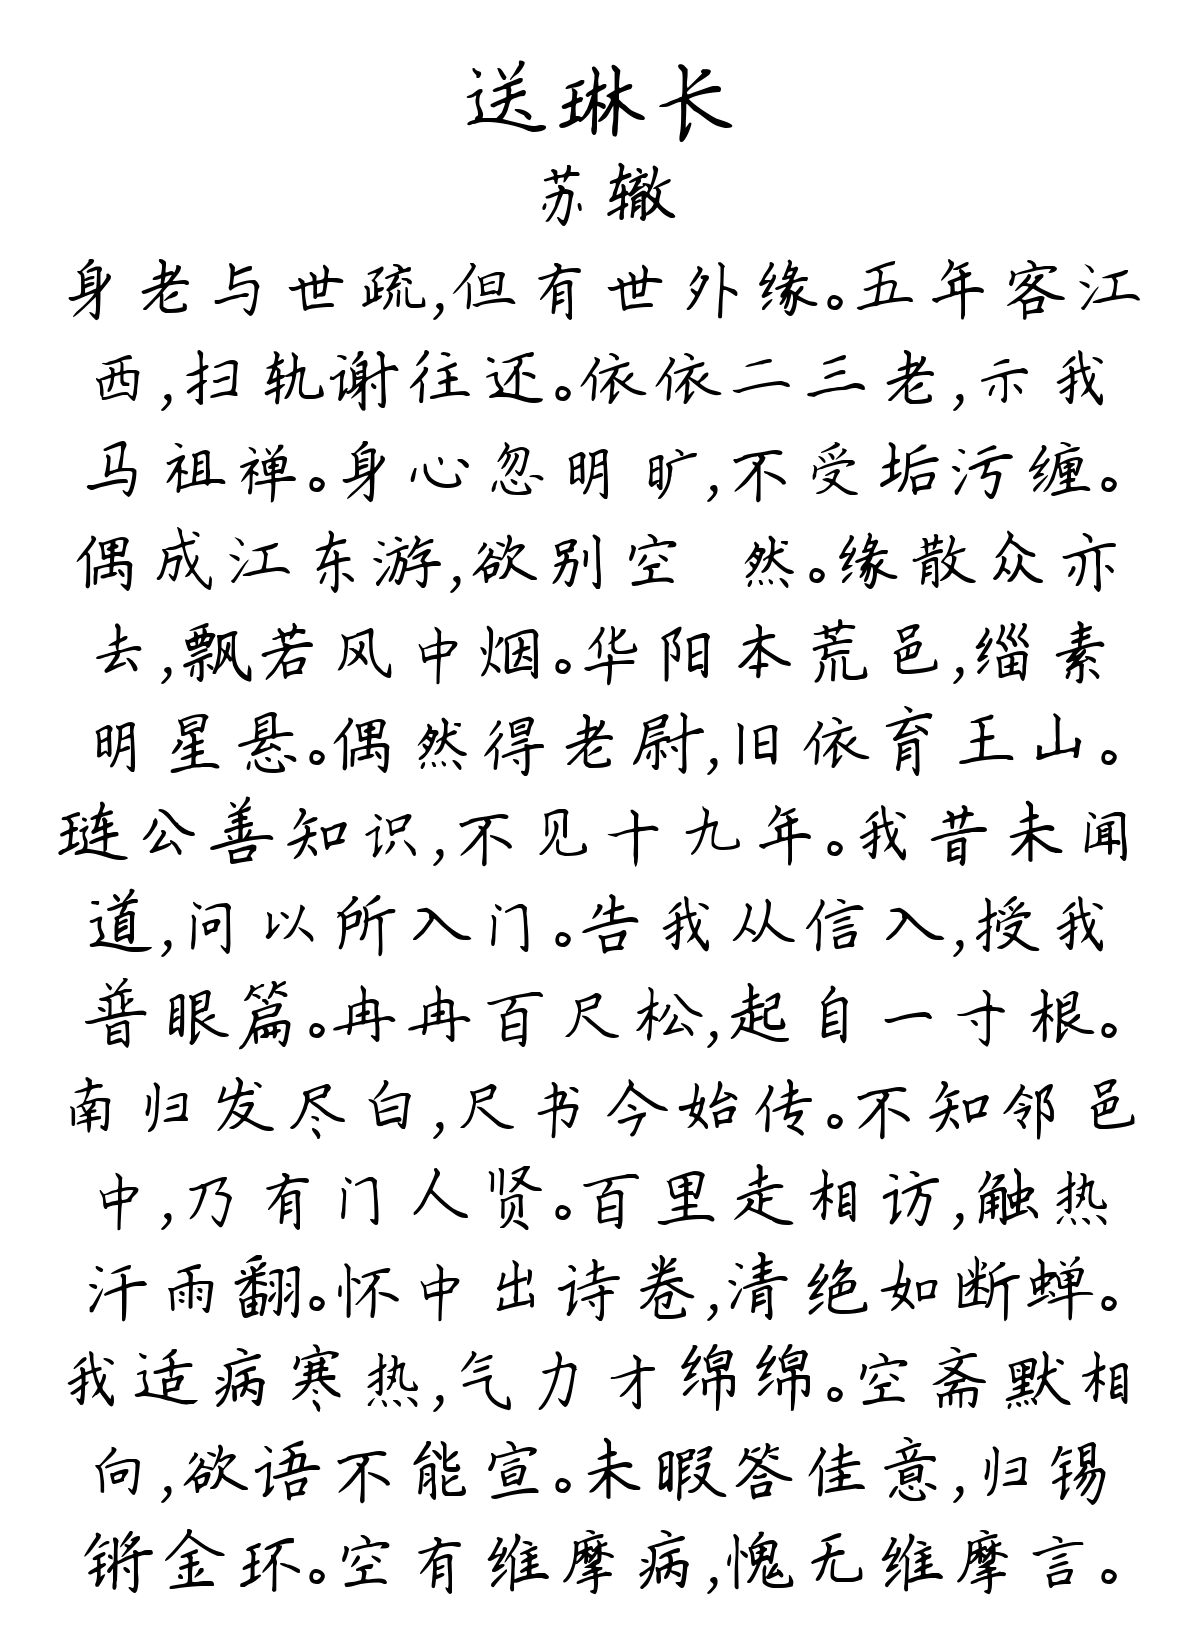 送琳长
苏辙
身老与世疏,但有世外缘。五年客江
西,扫轨谢往还。依依二三老,示我
马祖禅。身心忽明旷,不受垢污缠。
偶成江东游,欲别空 然。缘散众亦
去,飘若风中烟。华阳本荒邑,缁素
明星悬。偶然得老尉,旧依育王山。
琏公善知识,不见十九年。我昔未闻
道,问以所入门。告我从信入,授我
普眼篇。冉冉百尺松,起自一寸根。
南归发尽白,尺书今始传。不知邻邑
中,乃有门人贤。百里走相访,触热
汗雨翻。怀中出诗卷,清绝如断蝉。
我适病寒热,气力才绵绵。空斋默相
向,欲语不能宣。未暇答佳意,归锡
锵金环。空有维摩病,愧无维摩言。